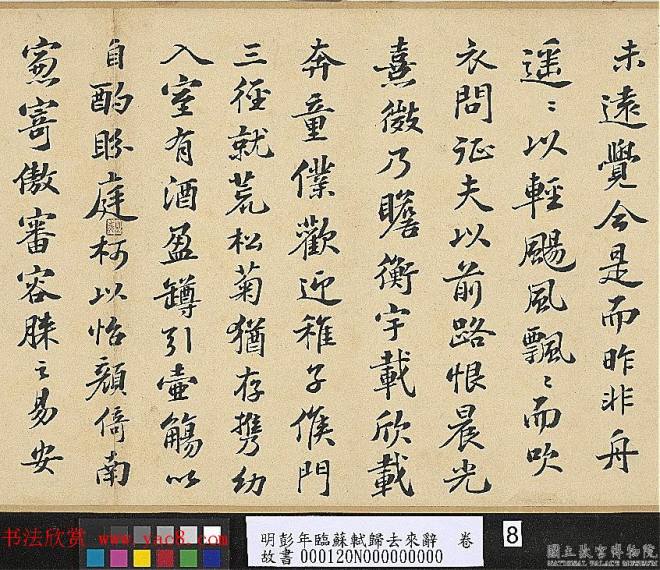 未遠覺今是而昨非舟
遥〻以輕颺風飄〻而吹
衣問征夫以前路恨晨光
熹微乃瞻衡宇載欣載
奔童僕歡迎稚子候門
三徑就荒松菊猶存携幼
入室有酒盈罇引壺觴以
自酌眄庭柯以怡顏倚南
窓寄傲審容膝之易安
书法欣赏
www.yac8.com
明彭年臨蘇軾歸去來辭 卷
故書 000120N000000000
8
國立故宮博物院